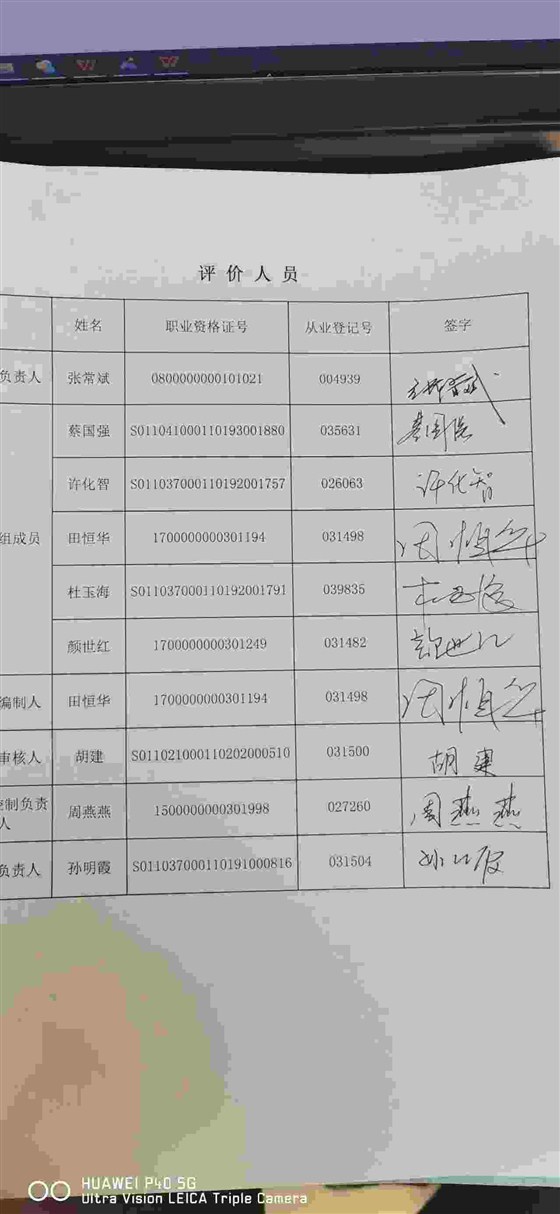 评价人员
姓名 职业资格证号 从业登记号 签字
负责人 张常斌 0800000000101021 004939 张常斌
蔡国强 S011041000110193001880 035631 蔡国强
许化智 S011037000110192001757 026063 许化智
组成员 田恒华 1700000000301194 031498 田恒华
杜玉海 S011037000110192001791 039835 杜玉海
颜世红 1700000000301249 031482 颜世红
编制人 田恒华 1700000000301194 031498 田恒华
审核人 胡建 S011021000110202000510 031500 胡建
控制负责
人 周燕燕 1500000000301998 027260 周燕燕
负责人 孙明霞 S011037000110191000816 031504 孙明霞
HUAWEI P40 5G
Ultra Vision LEICA Triple Camera